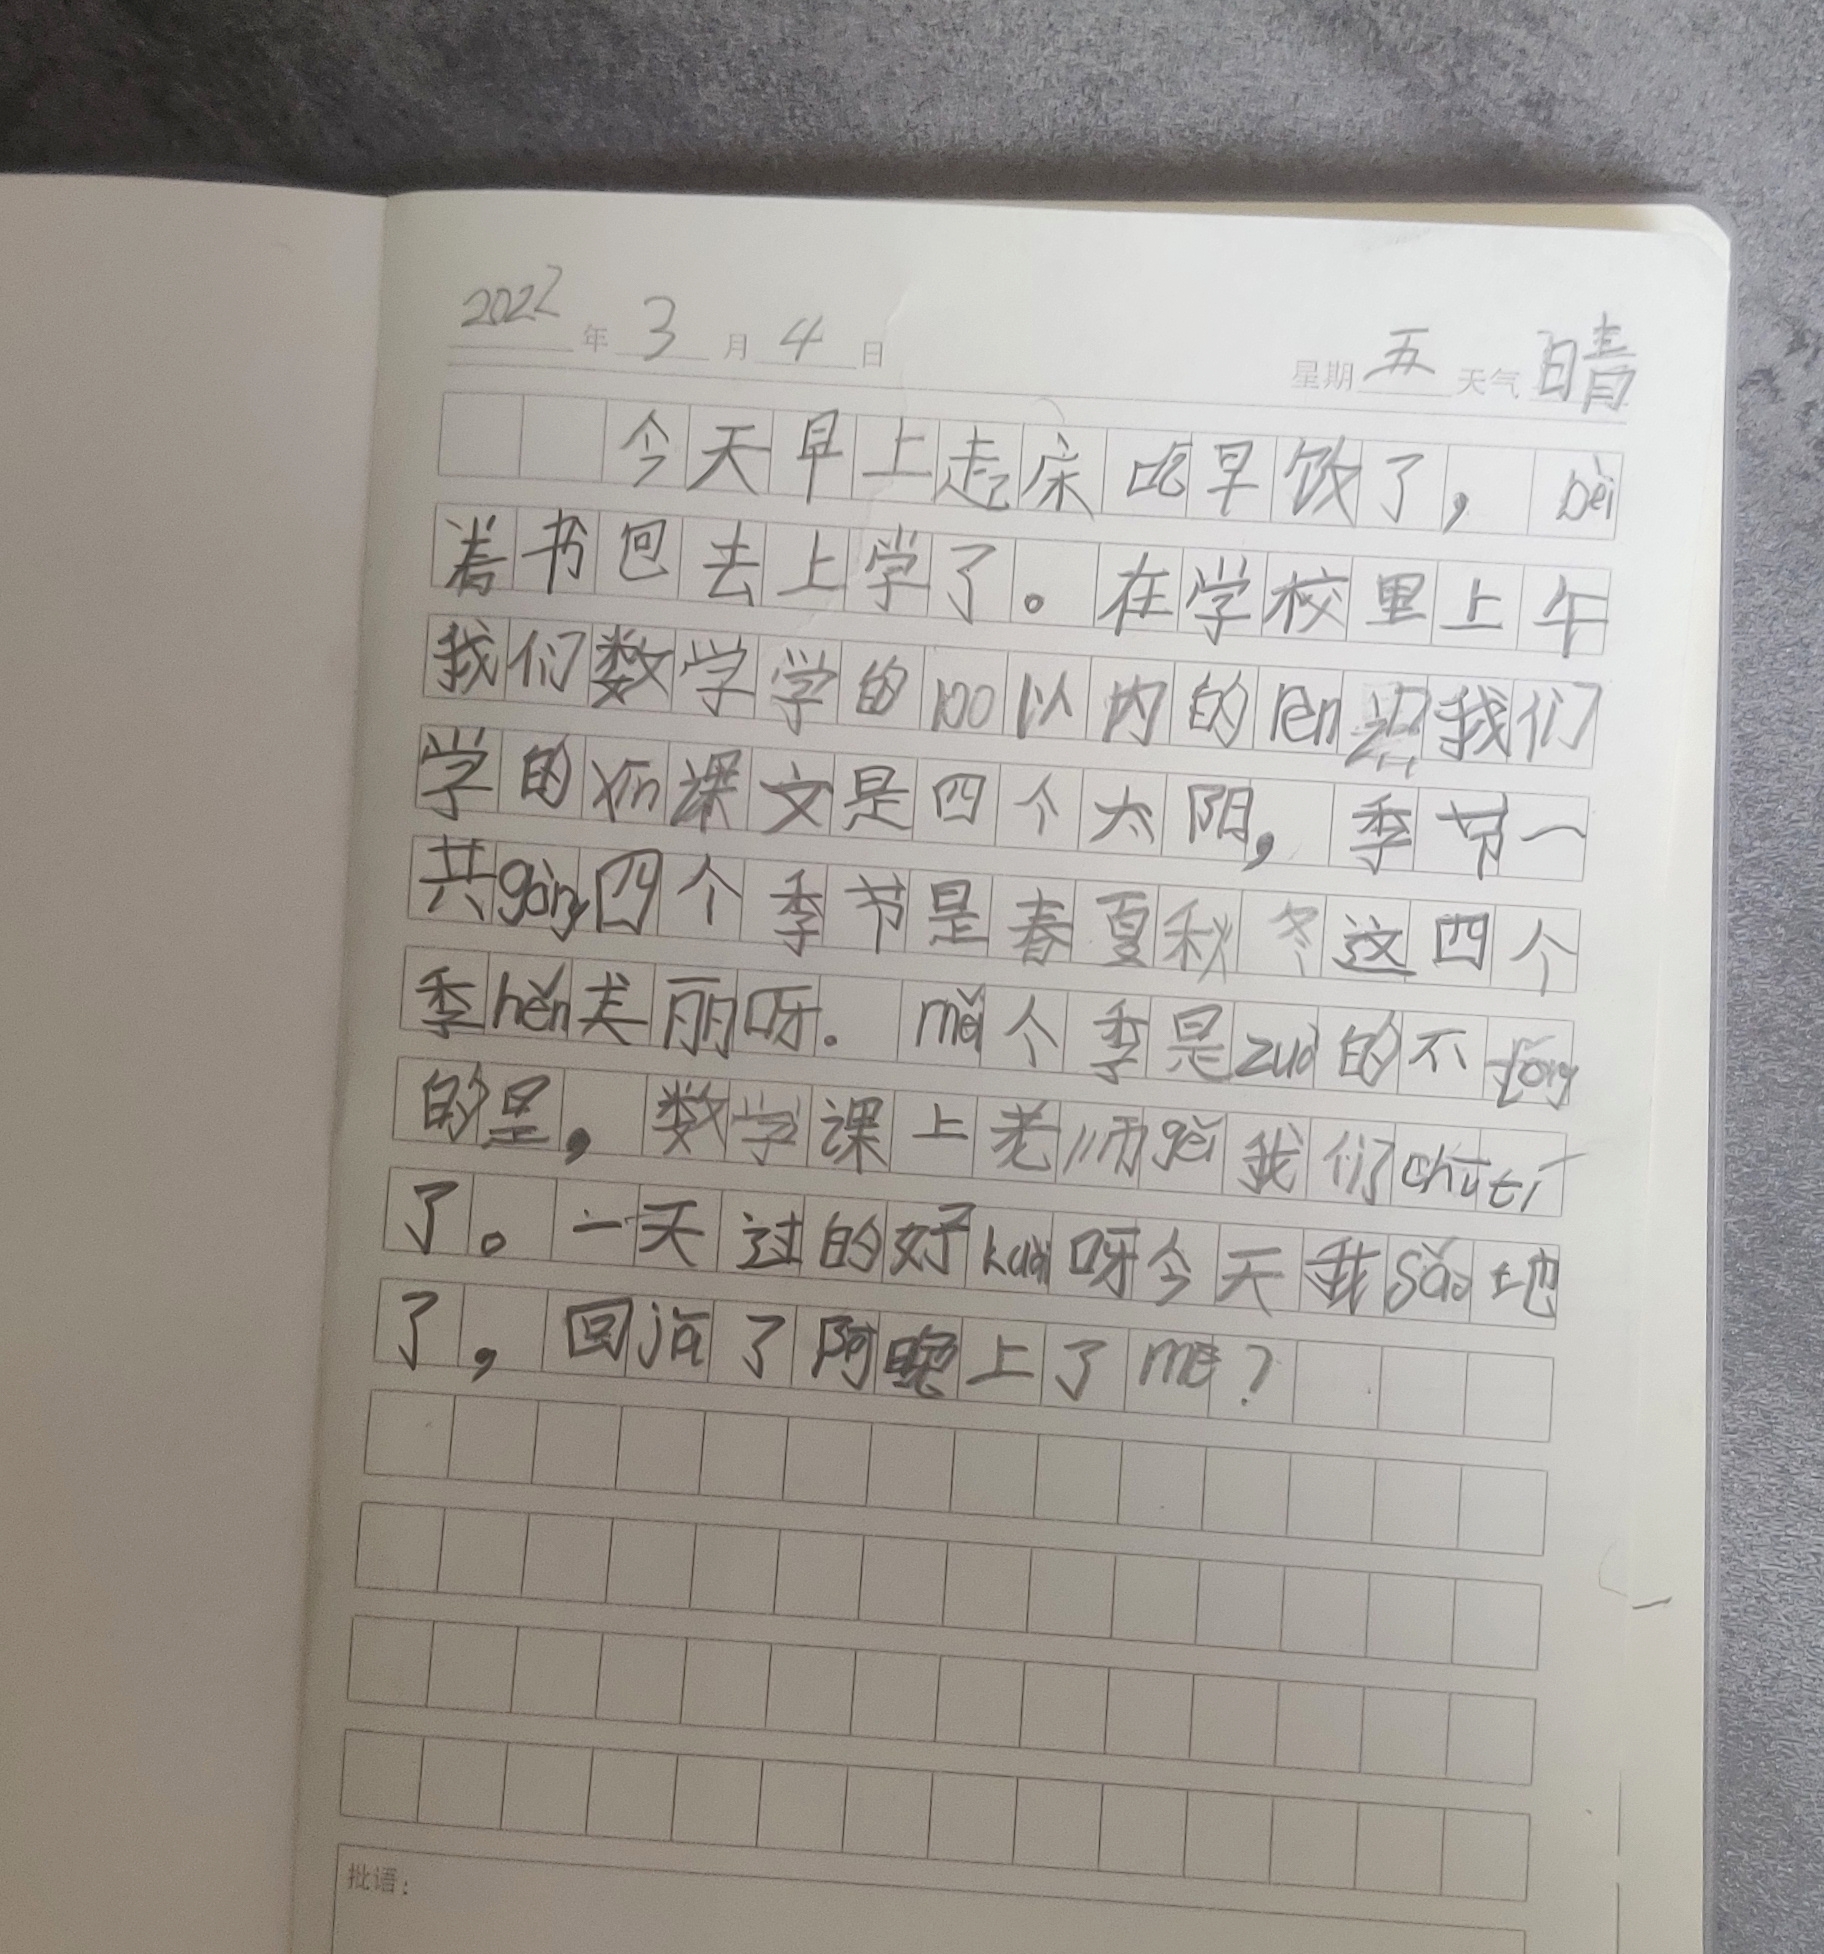 2022年3月4日 星期五 天气晴
今天早上起床吃早饭了，bèi
着书包去上学了。在学校里上午
我们数学学的100以内的rèn识我们
学的xīn课文是四个太阳，季节一
共gòng四个季节是春夏秋冬这四个
季hěn美丽呀.měi个季是zuò的不tóng
的是，数学课上老师gěi我们chūtí
了。一天过的好kuài呀今天我sǎo地
了，回jiā了阿晚上了mē？
批语：